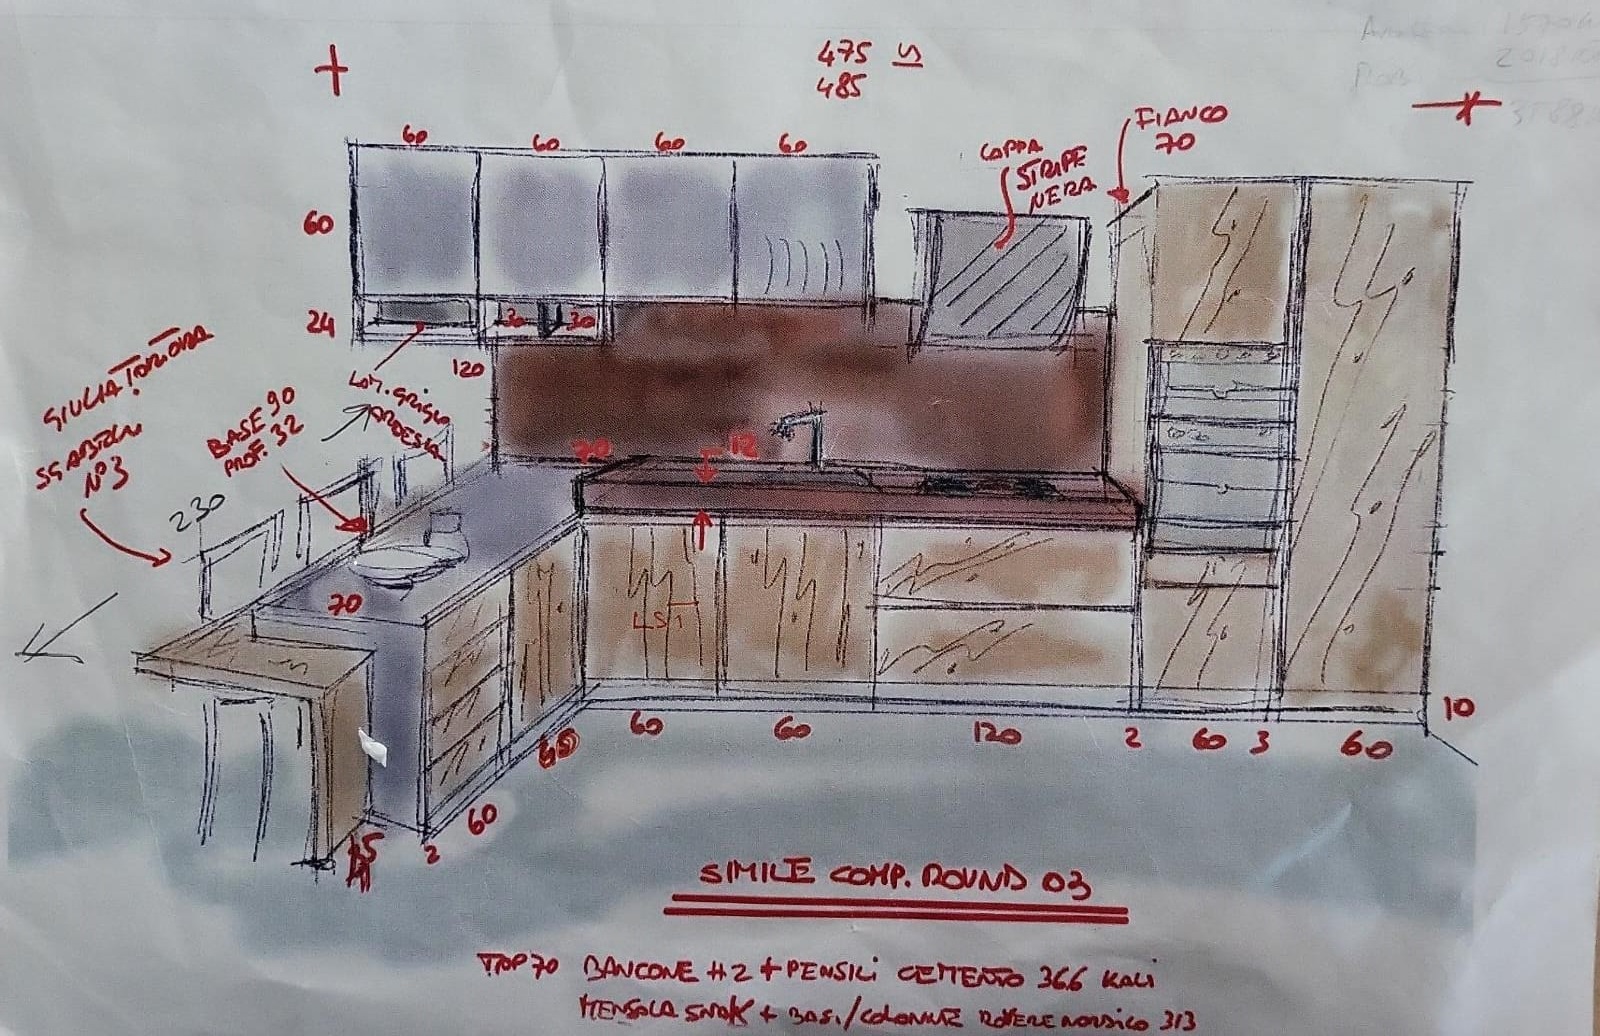 475
485
FIANCO
70
CAPPA
STRIPE
NERA
60 60 60 60
60
24
30 30
120
LAM. GRIGIO
ARDESIA
GIULIA TORTORA
SGABELLI
N°3
BASE 90
PROF. 32
230
70
12
70
45
60 60 120 2 60 3 60
10
60
2
15
SIMILE COMP. ROUND 03
TOP 70 BANCONE H2 + PENSILI CEMENTO 366 KALI
MENSOLA SNAK + BASI/COLONNE ROVERE NORDICO 313